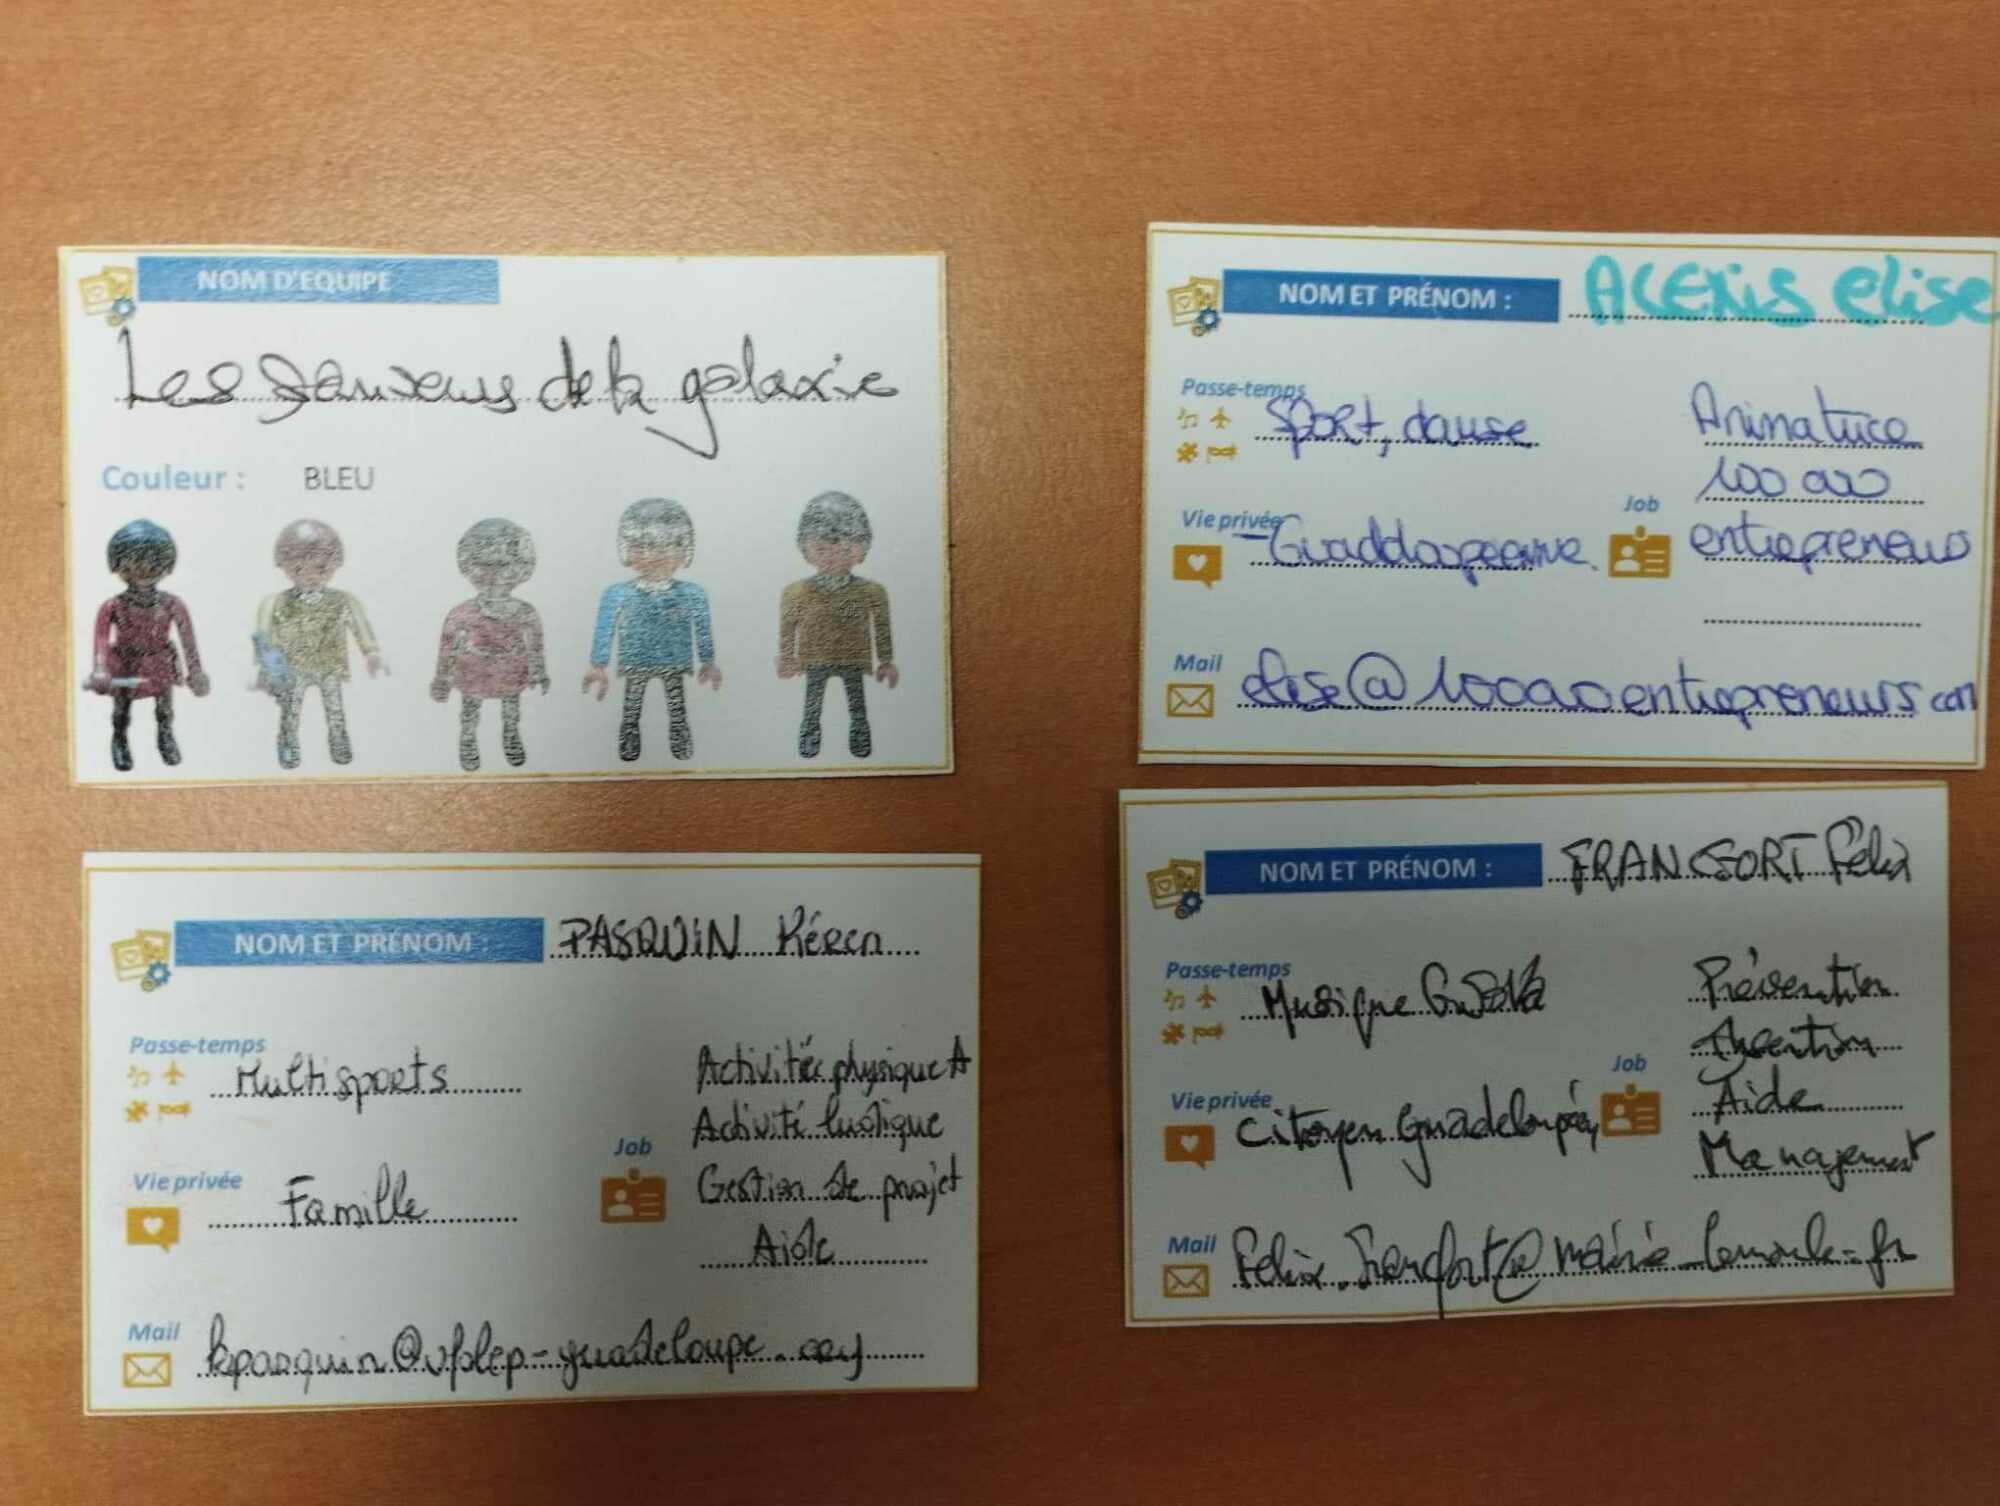 NOM D'EQUIPE
Les sauveurs de la galaxie
Couleur : BLEU
NOM ET PRÉNOM : ALEXIS elise
Passe-temps
Sport, danse
Vie privée
Guaddoupéenne.
Job
Animatrice
100 000
entrepreneurs
Mail
elise@100000entrepreneurs.com
NOM ET PRÉNOM : PASQUIN Kéren
Passe-temps
Multisports
Vie privée
Famille
Job
Activités physique A
Activité ludique
Gestion de projet
Aide
Mail
kpasquin@ufolep-guadeloupe.org
NOM ET PRÉNOM : FRANCFORT Félix
Passe-temps
Musique
Vie privée
Citoyen Guadeloupéen
Job
Prévention
Insertion
Aide
Management
Mail
Felix.Francfort@mairie-lemoule.fr